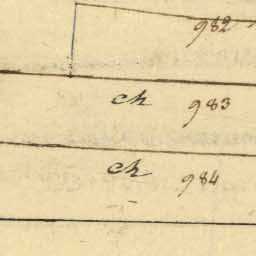 982
ch 983
ch 984